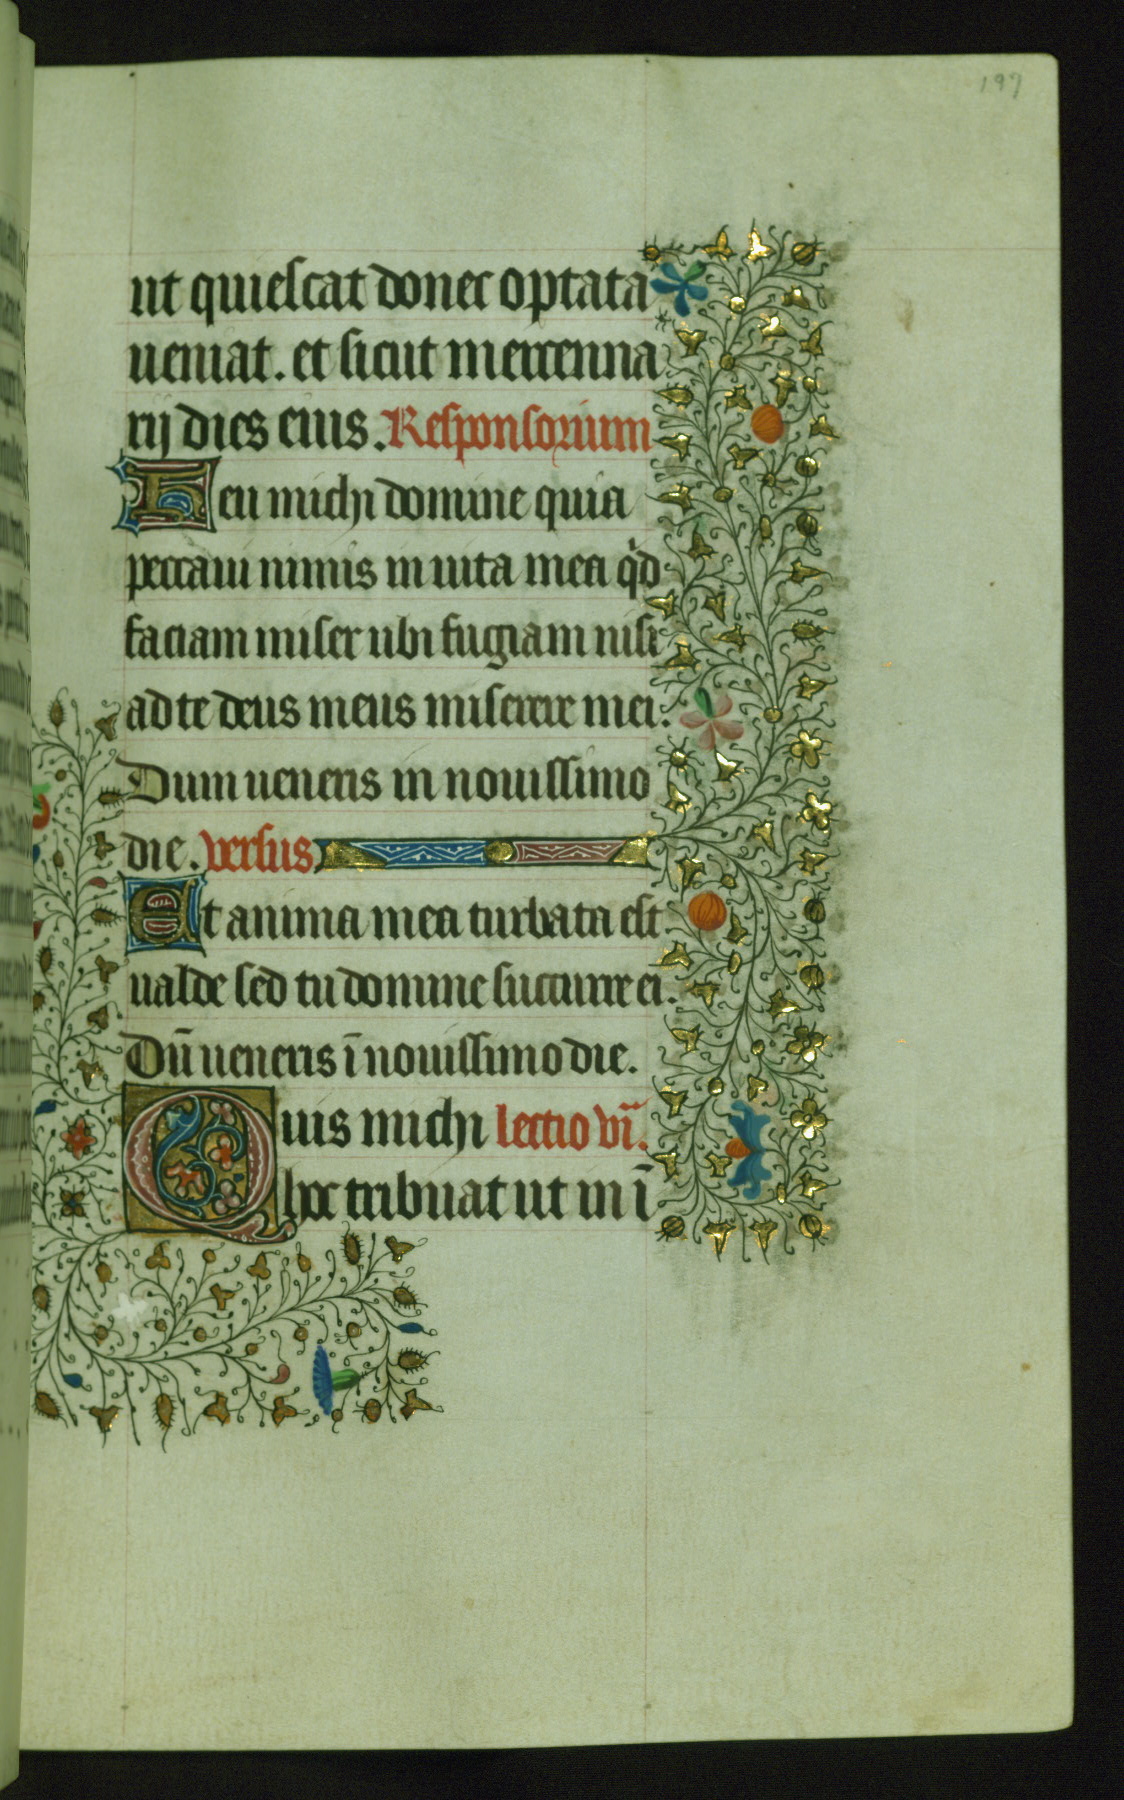 197
ut quiescat donec optata
ueniat. et sicut mercenna
rij dies eius. Responsorium
Heu michi domine quia
peccaui nimis in uita mea qd
faciam miser ubi fugiam nisi
ad te deus meus miserere mei.
Dum ueneris in nouissimo
die. versus
Et anima mea turbata est
ualde sed tu domine succurre ei.
Dū ueneris ī nouissimo die.
Quis michi lectio vī.
hoc tribuat ut in ī